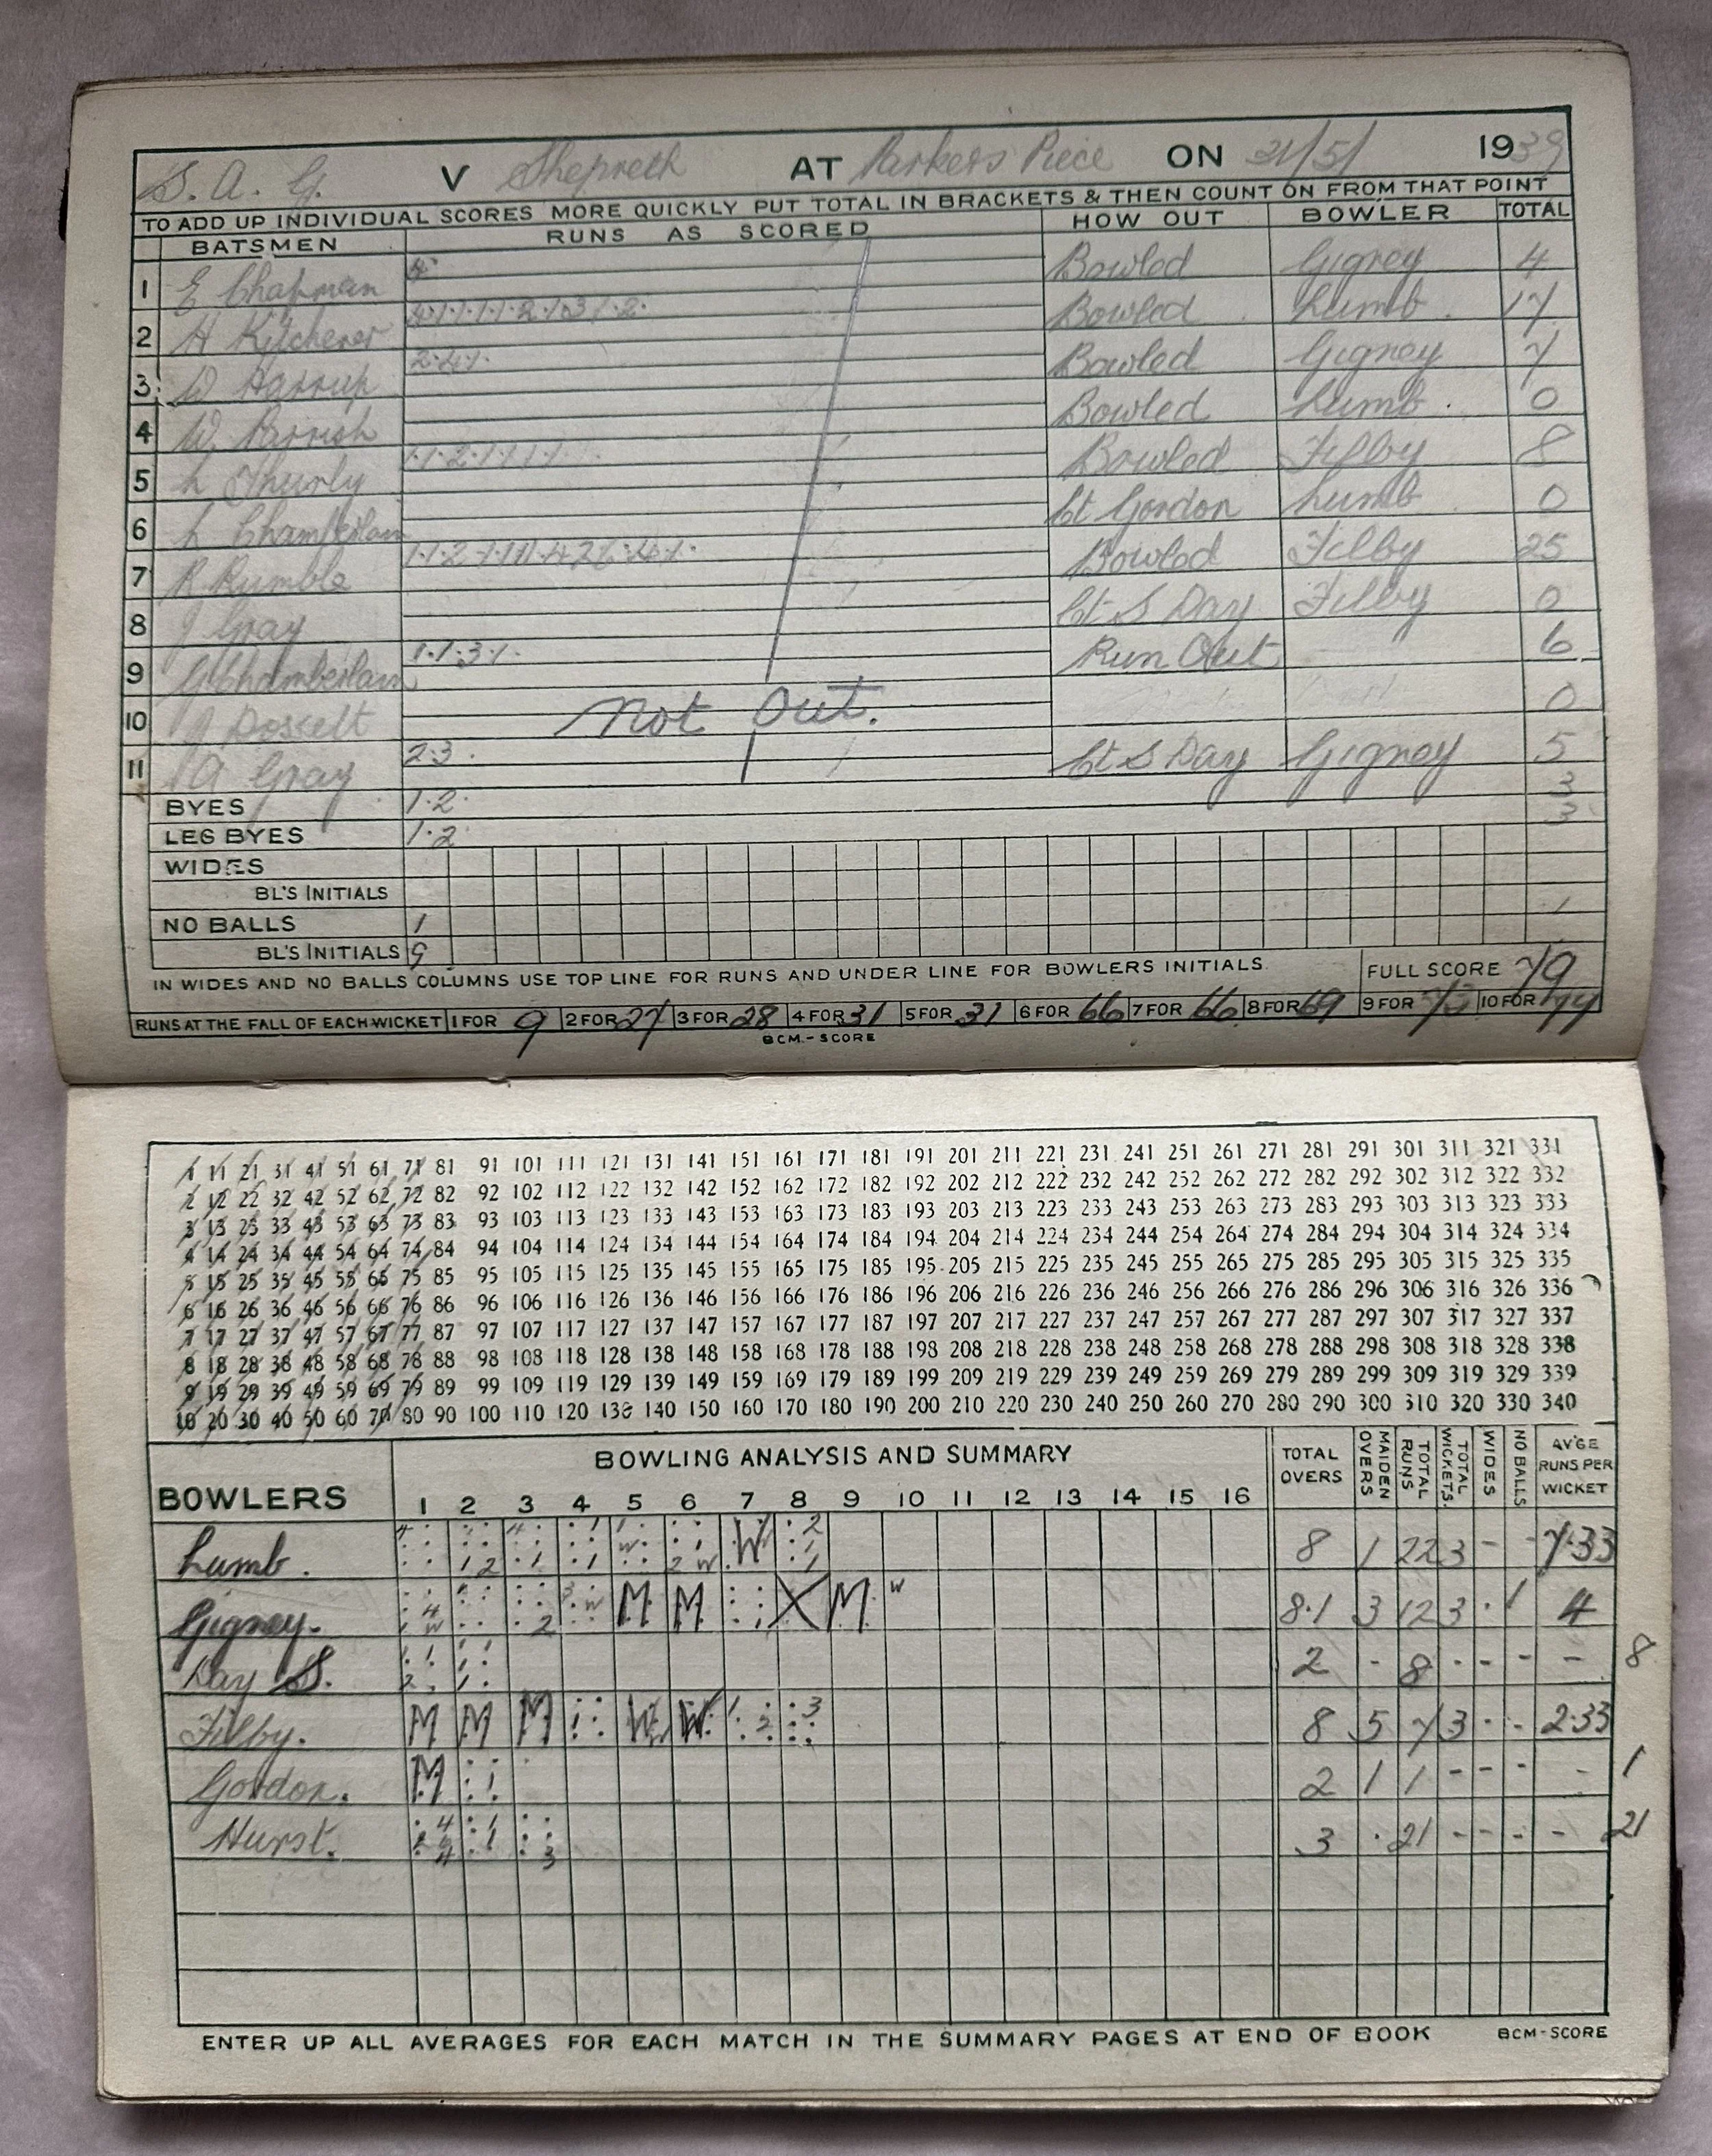 S. A. G. V Shepreth AT Parkers Piece ON 21/5/ 1939
TO ADD UP INDIVIDUAL SCORES MORE QUICKLY PUT TOTAL IN BRACKETS & THEN COUNT ON FROM THAT POINT
BATSMEN RUNS AS SCORED HOW OUT BOWLER TOTAL
1 E Chapman 4 Bowled Gigney 4
2 H Kitchener 4.1.1.1.1.2.1.3.1.2. Bowled Lumb. 17
3 D Harrup 2.4.1. Bowled Gigney 7
4 W. Parrish Bowled Lumb. 0
5 L Thurly 1.1.2.1.1.1.1. Bowled Filby 8
6 L Chamberlain Ct Gordon Lumb 0
7 R Rumble Bowled Filby 25
8 J Gray Ct S Day Filby 0
9 G Chamberlain 1.1.3.1. Run Out 6
10 J Dossett Not Out. 0
11 A Gray 2.3. Ct S Day Gigney 5
BYES 1.2. 3
LEG BYES 1.2 3
WIDES
BL'S INITIALS
NO BALLS 1 1
BL'S INITIALS G
IN WIDES AND NO BALLS COLUMNS USE TOP LINE FOR RUNS AND UNDER LINE FOR BOWLERS INITIALS. FULL SCORE 79
RUNS AT THE FALL OF EACH WICKET 1 FOR 9 2 FOR 27 3 FOR 28 4 FOR 31 5 FOR 31 6 FOR 66 7 FOR 66 8 FOR 69 9 FOR 10 FOR
BCM.-SCORE
1 11 21 31 41 51 61 71 81 91 101 111 121 131 141 151 161 171 181 191 201 211 221 231 241 251 261 271 281 291 301 311 321 331
2 12 22 32 42 52 62 72 82 92 102 112 122 132 142 152 162 172 182 192 202 212 222 232 242 252 262 272 282 292 302 312 322 332
3 13 23 33 43 53 63 73 83 93 103 113 123 133 143 153 163 173 183 193 203 213 223 233 243 253 263 273 283 293 303 313 323 333
4 14 24 34 44 54 64 74 84 94 104 114 124 134 144 154 164 174 184 194 204 214 224 234 244 254 264 274 284 294 304 314 324 334
5 15 25 35 45 55 65 75 85 95 105 115 125 135 145 155 165 175 185 195 205 215 225 235 245 255 265 275 285 295 305 315 325 335
6 16 26 36 46 56 66 76 86 96 106 116 126 136 146 156 166 176 186 196 206 216 226 236 246 256 266 276 286 296 306 316 326 336
7 17 27 37 47 57 67 77 87 97 107 117 127 137 147 157 167 177 187 197 207 217 227 237 247 257 267 277 287 297 307 317 327 337
8 18 28 38 48 58 68 78 88 98 108 118 128 138 148 158 168 178 188 198 208 218 228 238 248 258 268 278 288 298 308 318 328 338
9 19 29 39 49 59 69 79 89 99 109 119 129 139 149 159 169 179 189 199 209 219 229 239 249 259 269 279 289 299 309 319 329 339
10 20 30 40 50 60 70 80 90 100 110 120 130 140 150 160 170 180 190 200 210 220 230 240 250 260 270 280 290 300 310 320 330 340
BOWLERS BOWLING ANALYSIS AND SUMMARY TOTAL OVERS MAIDEN OVERS TOTAL RUNS TOTAL WICKETS. WIDES NO BALLS AV'GE RUNS PER WICKET
1 2 3 4 5 6 7 8 9 10 11 12 13 14 15 16
Lumb. W 8 1 22 3 - - 7.33
Gigney. M M X M W 8.1 3 12 3 . 1 4
Day S. 2 - 8 - - - - 8
Filby. M M M W W 8 5 7 3 - - 2.33
Gordon. M 2 1 1 - - - - 1
Hurst. 3 . 21 - - - - 21
ENTER UP ALL AVERAGES FOR EACH MATCH IN THE SUMMARY PAGES AT END OF BOOK BCM-SCORE